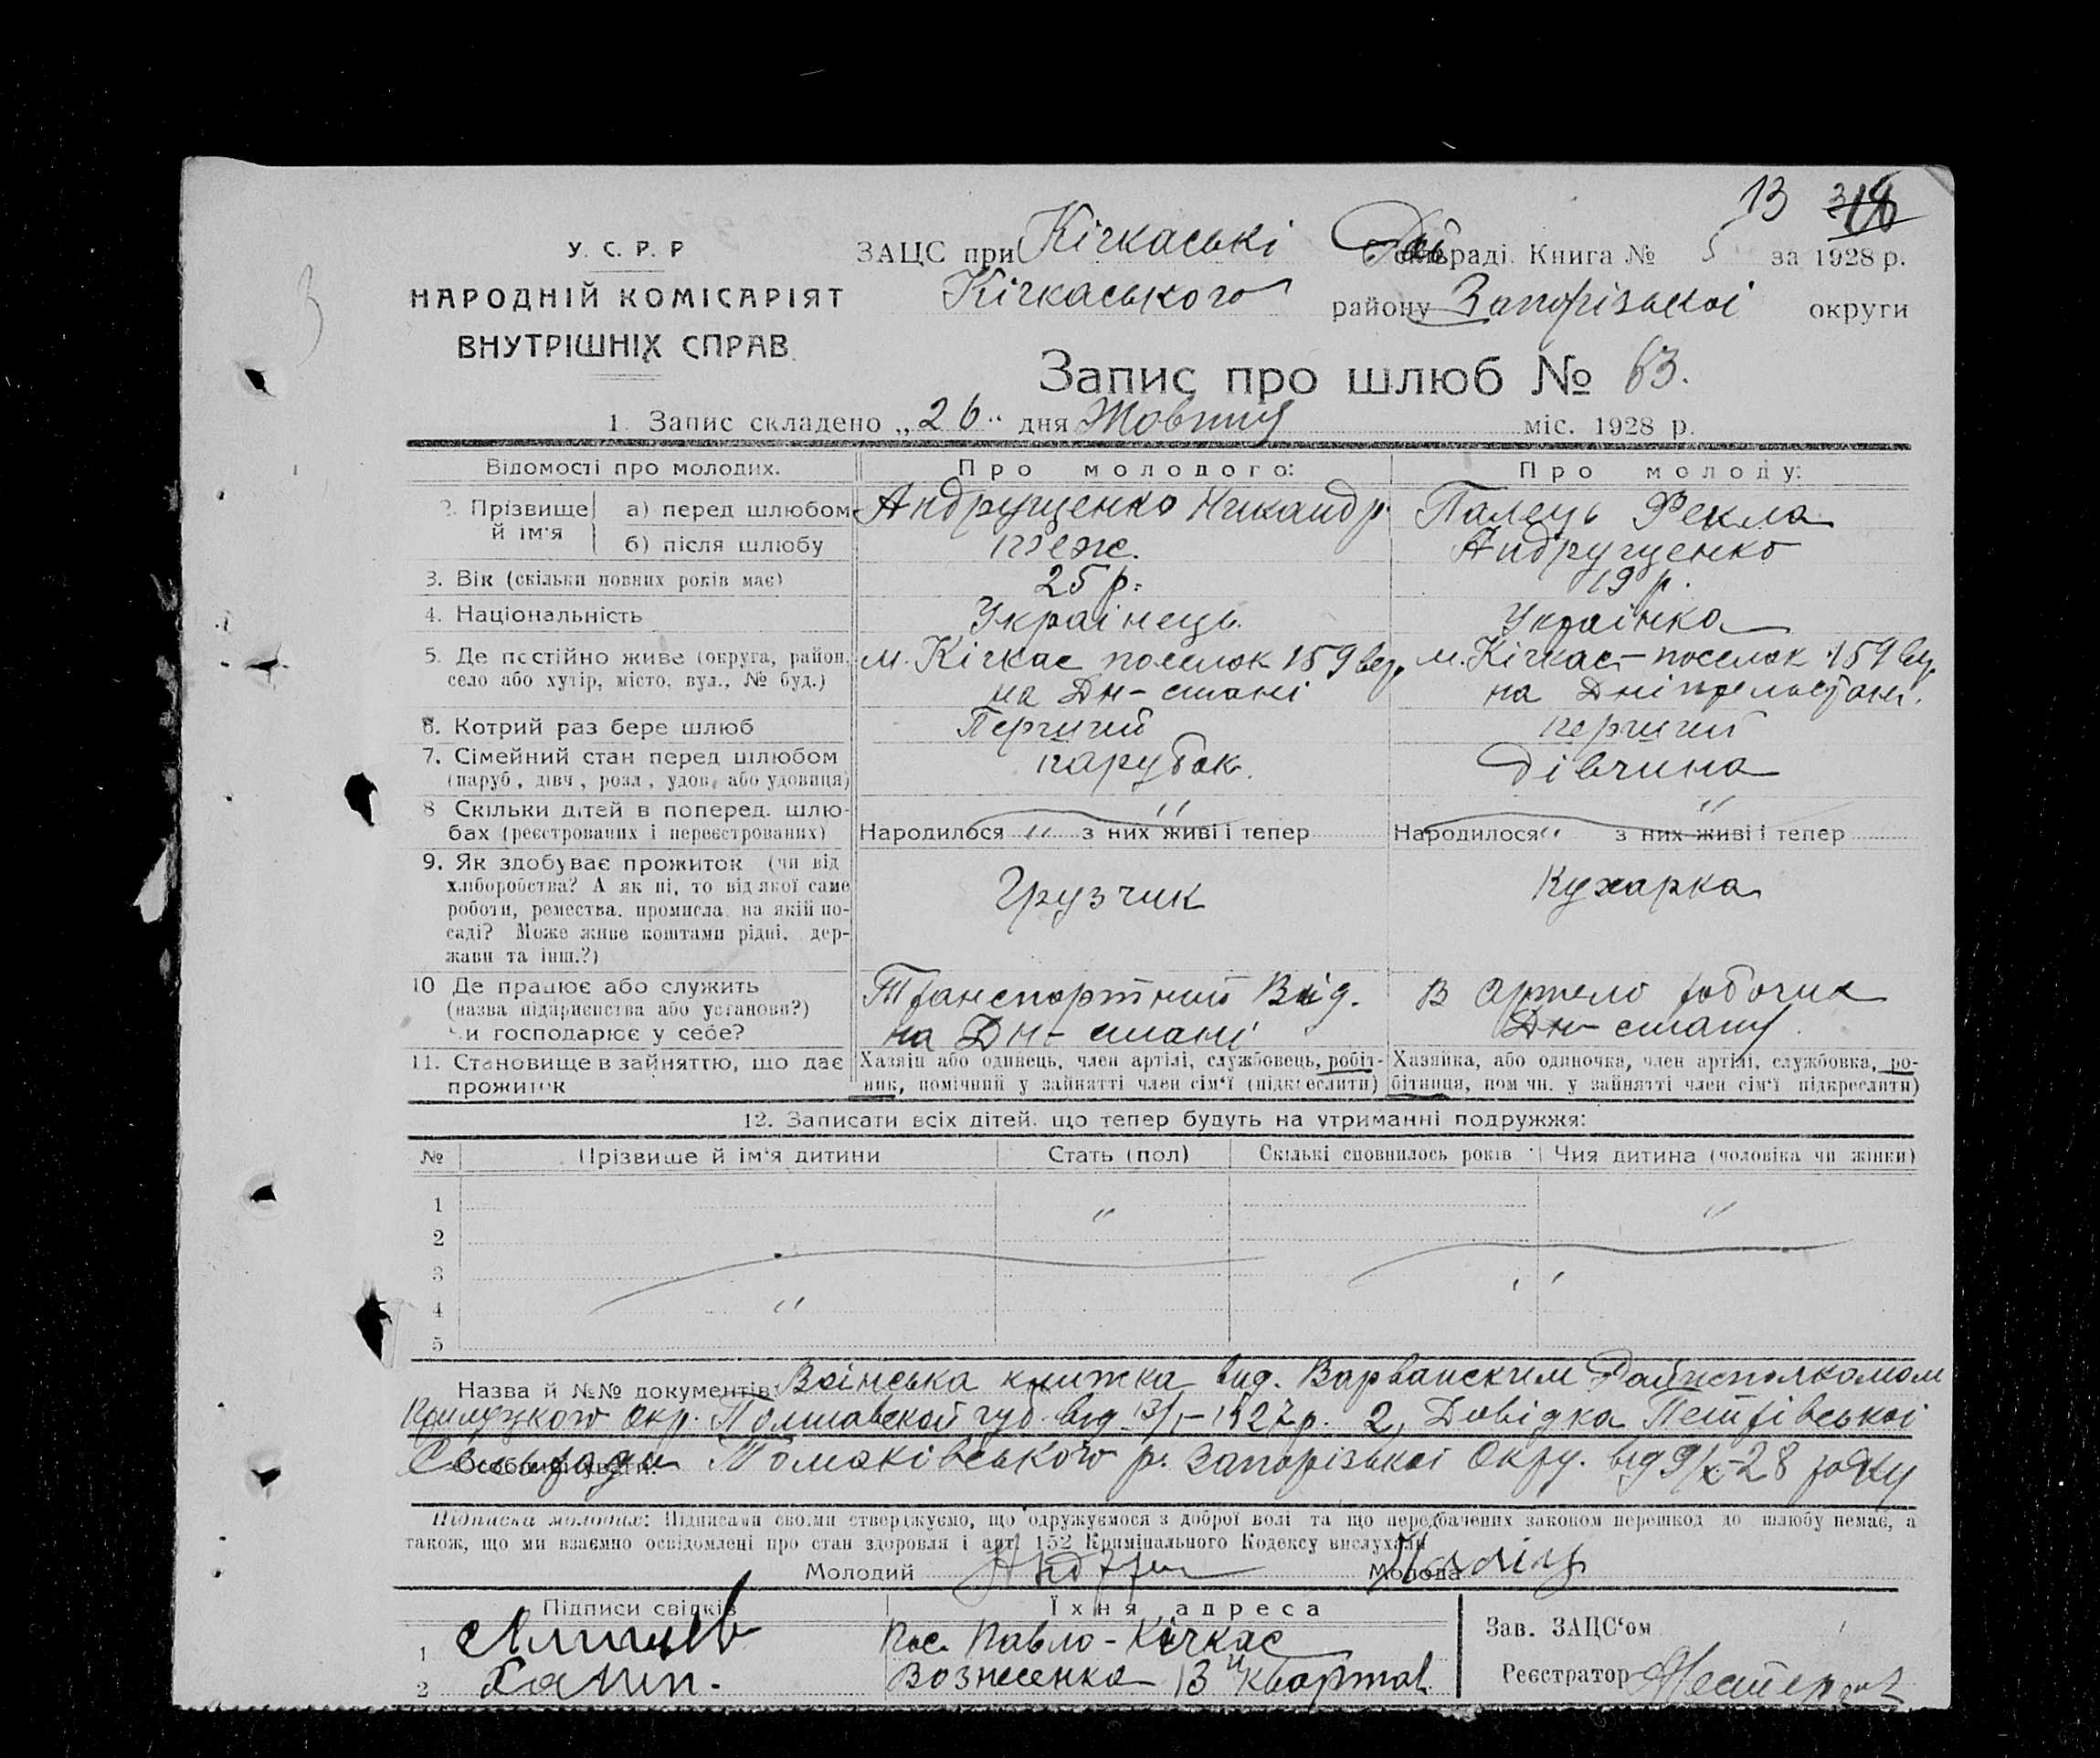 13 318
У. С. Р. Р
НАРОДНІЙ КОМІСАРІЯТ
ВНУТРІШНІХ СПРАВ
ЗАЦС при Кічкаські раді Книга № 5 за 1928 р.
Кічкаського району Запорізькоі округи
Запис про шлюб № 63.
1. Запис складено „26" дня Жовтня міс. 1928 р.
Відомості про молодих. Про молодого: Про молоду:
2. Прізвище й ім'я а) перед шлюбом Андрущенко Никандр Палець Фекла
б) після шлюбу теж. Андрущенко
3. Вік (скільки повних років має) 25 р. 19 р.
4. Національність Украінець. Украінка
5. Де постійно живе (округа, район, м. Кічкас поселок 159 вер. м. Кічкас – поселок 159 вер.
село або хутір, місто, вул., № буд.) на Дн-стані на Дніпрельстані.
6. Котрий раз бере шлюб Перший перший
7. Сімейний стан перед шлюбом парубок. Дівчина
(паруб., дівч., розл., удов. або удовиця)
8 Скільки дітей в поперед. шлю- " "
бах (реєстрованих і нереєстрованих) Народилося " з них живі і тепер Народилося " з них живі і тепер
9. Як здобуває прожиток (чи від
хліборобства? А як ні, то від якої саме Грузчик Кухарка
роботи, ремества, промисла, на якій по-
саді? Може живе коштами рідні, дер-
жави та інш.?)
10 Де працює або служить Транспортний Від. В Артело робочих
(назва підприємства або установи?) на Дн-стані Дн-стану.
Чи господарює у себе?
11. Становище в зайняттю, що дає Хазяїн або одинець, член артілі, службовець, робіт- Хазяйка, або одиночка, член артілі, службовка, ро-
прожиток ник, помічний у зайнятті член сім'ї (підкреслити) бітниця, пом чн. у зайнятті член сім'ї підкреслити)
12. Записати всіх дітей, що тепер будуть на утриманні подружжя:
№ Прізвище й ім'я дитини Стать (пол) Скількі сповнилось років Чия дитина (чоловіка чи жінки)
1 " "
2
3 "
4 "
5
Назва й №№ документів: Воінська книжка вид. Варванским Райисполкомом
Прилуцкого Окр. Полтавской губ. від 13/I – 1927 р. 2, Довідка Петрівськоі
Особливі уваги: Сельради Томаківського р. Запорізькоі Окру. від 9/X-28 року
Підписка молодих: Підписами своїми стверджуємо, що одружуємося з доброї волі та що передбачених законом перешкод до шлюбу немає, а
також, що ми взаємно освідомлені про стан здоровля і арт. 152 Кримінального Кодексу вислухали
Молодий Молода
Підписи свідків Їхня адреса
1 Пос. Павло-Кічкас Зав. ЗАЦС'ом
2 Вознесенка 13 й квартал. Реєстратор